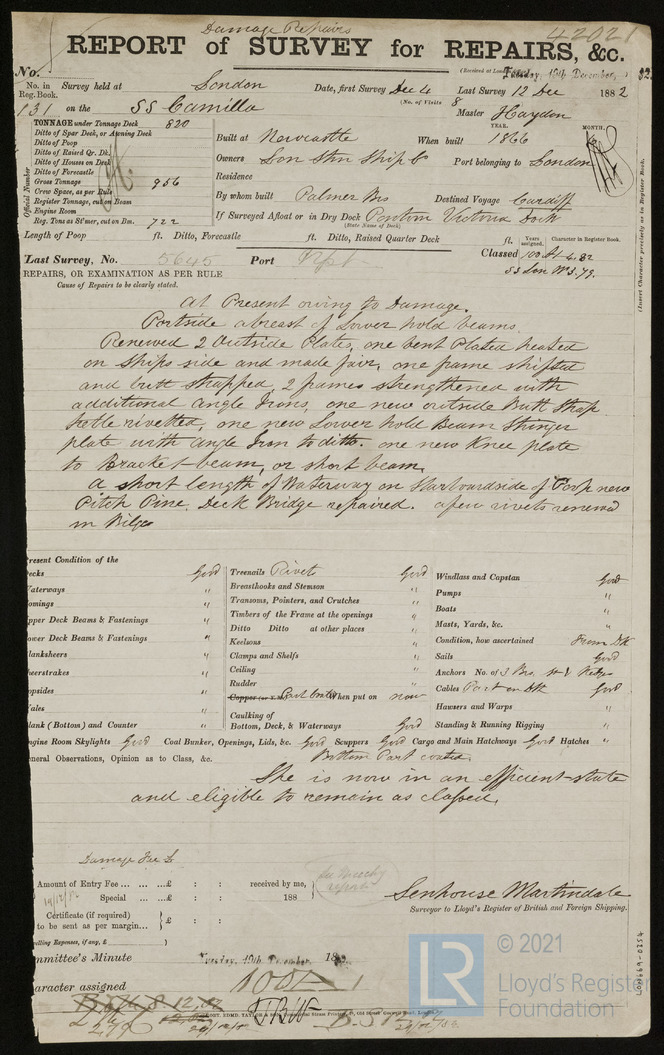 Damage Repairs
42021
REPORT of SURVEY for REPAIRS, &c.
No.
(Received at London Tuesday, 19th December, 82.
No. in Reg. Book. Survey held at London Date, first Survey Dec 4 Last Survey 12 Dec 1882
(No. of Visits 8
131 on the SS Camilla Master Haydon
TONNAGE under Tonnage Deck 820
Ditto of Spar Deck, or Awning Deck
Ditto of Poop
Ditto of Raised Qr. Dk.
Ditto of Houses on Deck
Ditto of Forecastle
Gross Tonnage 956
Crew Space, as per Rule
Register Tonnage, cut on Beam
Engine Room
Reg. Tons as St'mer, cut on Bm. 722
Official Number
YEAR. MONTH.
Built at Newcastle When built 1866
Owners Lon Stm Ship Co Port belonging to London
Residence
By whom built Palmer Bros Destined Voyage Cardiff
If Surveyed Afloat or in Dry Dock Pontoon Victoria Dock
(State Name of Dock)
Length of Poop ft. Ditto, Forecastle ft. Ditto, Raised Quarter Deck ft.
Years assigned. Character in Register Book.
Last Survey, No. 5645 Port Npt Classed 100 A1 4.82
SS Lon No 3.79.
(Insert Character precisely as in Register Book.
REPAIRS, OR EXAMINATION AS PER RULE
Cause of Repairs to be clearly stated.
At Present owing to Damage.
Portside abreast of Lower hold beams.
Renewed 2 Outside Plates, one bent Plated heated
on Ships side and made fair, one frame shifted
and butt strapped, 2 frames strengthened with
additional angle Irons, one new outside Butt Strap
treble rivetted, one new Lower hold Beam Stringer
plate with angle Iron to ditto. one new Knee plate
to Bracket-beam, or short beam.
a short length of Waterway on Starboardside of Poop new
Pitch Pine. Deck Bridge repaired. a few rivets renewed
in Bilge
resent Condition of the
ecks Good
aterways "
omings "
pper Deck Beams & Fastenings "
ower Deck Beams & Fastenings "
lanksheers "
heerstrakes "
opsides "
ales "
lank (Bottom) and Counter "
Treenails Rivets Good
Breasthooks and Stemson "
Transoms, Pointers, and Crutches "
Timbers of the Frame at the openings "
Ditto Ditto at other places "
Keelsons "
Clamps and Shelfs "
Ceiling "
Rudder "
Copper (or Y.M.) Part Coated When put on now
Caulking of Bottom, Deck, & Waterways Good
Windlass and Capstan Good
Pumps "
Boats "
Masts, Yards, &c. "
Condition, how ascertained From DK
Sails Good
Anchors No. of 3 Bro. St & Kedge
Cables Part on DK Good
Hawsers and Warps "
Standing & Running Rigging "
ngine Room Skylights Good Coal Bunker, Openings, Lids, &c. Good Scuppers Good Cargo and Main Hatchways Good Hatches "
eneral Observations, Opinion as to Class, &c. Bottom Part coated.
She is now in an efficient state
and eligible to remain as classed.
Damage Fee £
Amount of Entry Fee ... £ : : received by me,
Special ... £ : : 188
Certificate (if required) to be sent as per margin... £ : :
velling Expenses, if any, £ )
Senhouse Martindale
Surveyor to Lloyd's Register of British and Foreign Shipping.
mmittee's Minute Tuesday, 19th December, 18
aracter assigned 100A1
LON669-0254
LR
© 2021
Lloyd's Register
Foundation